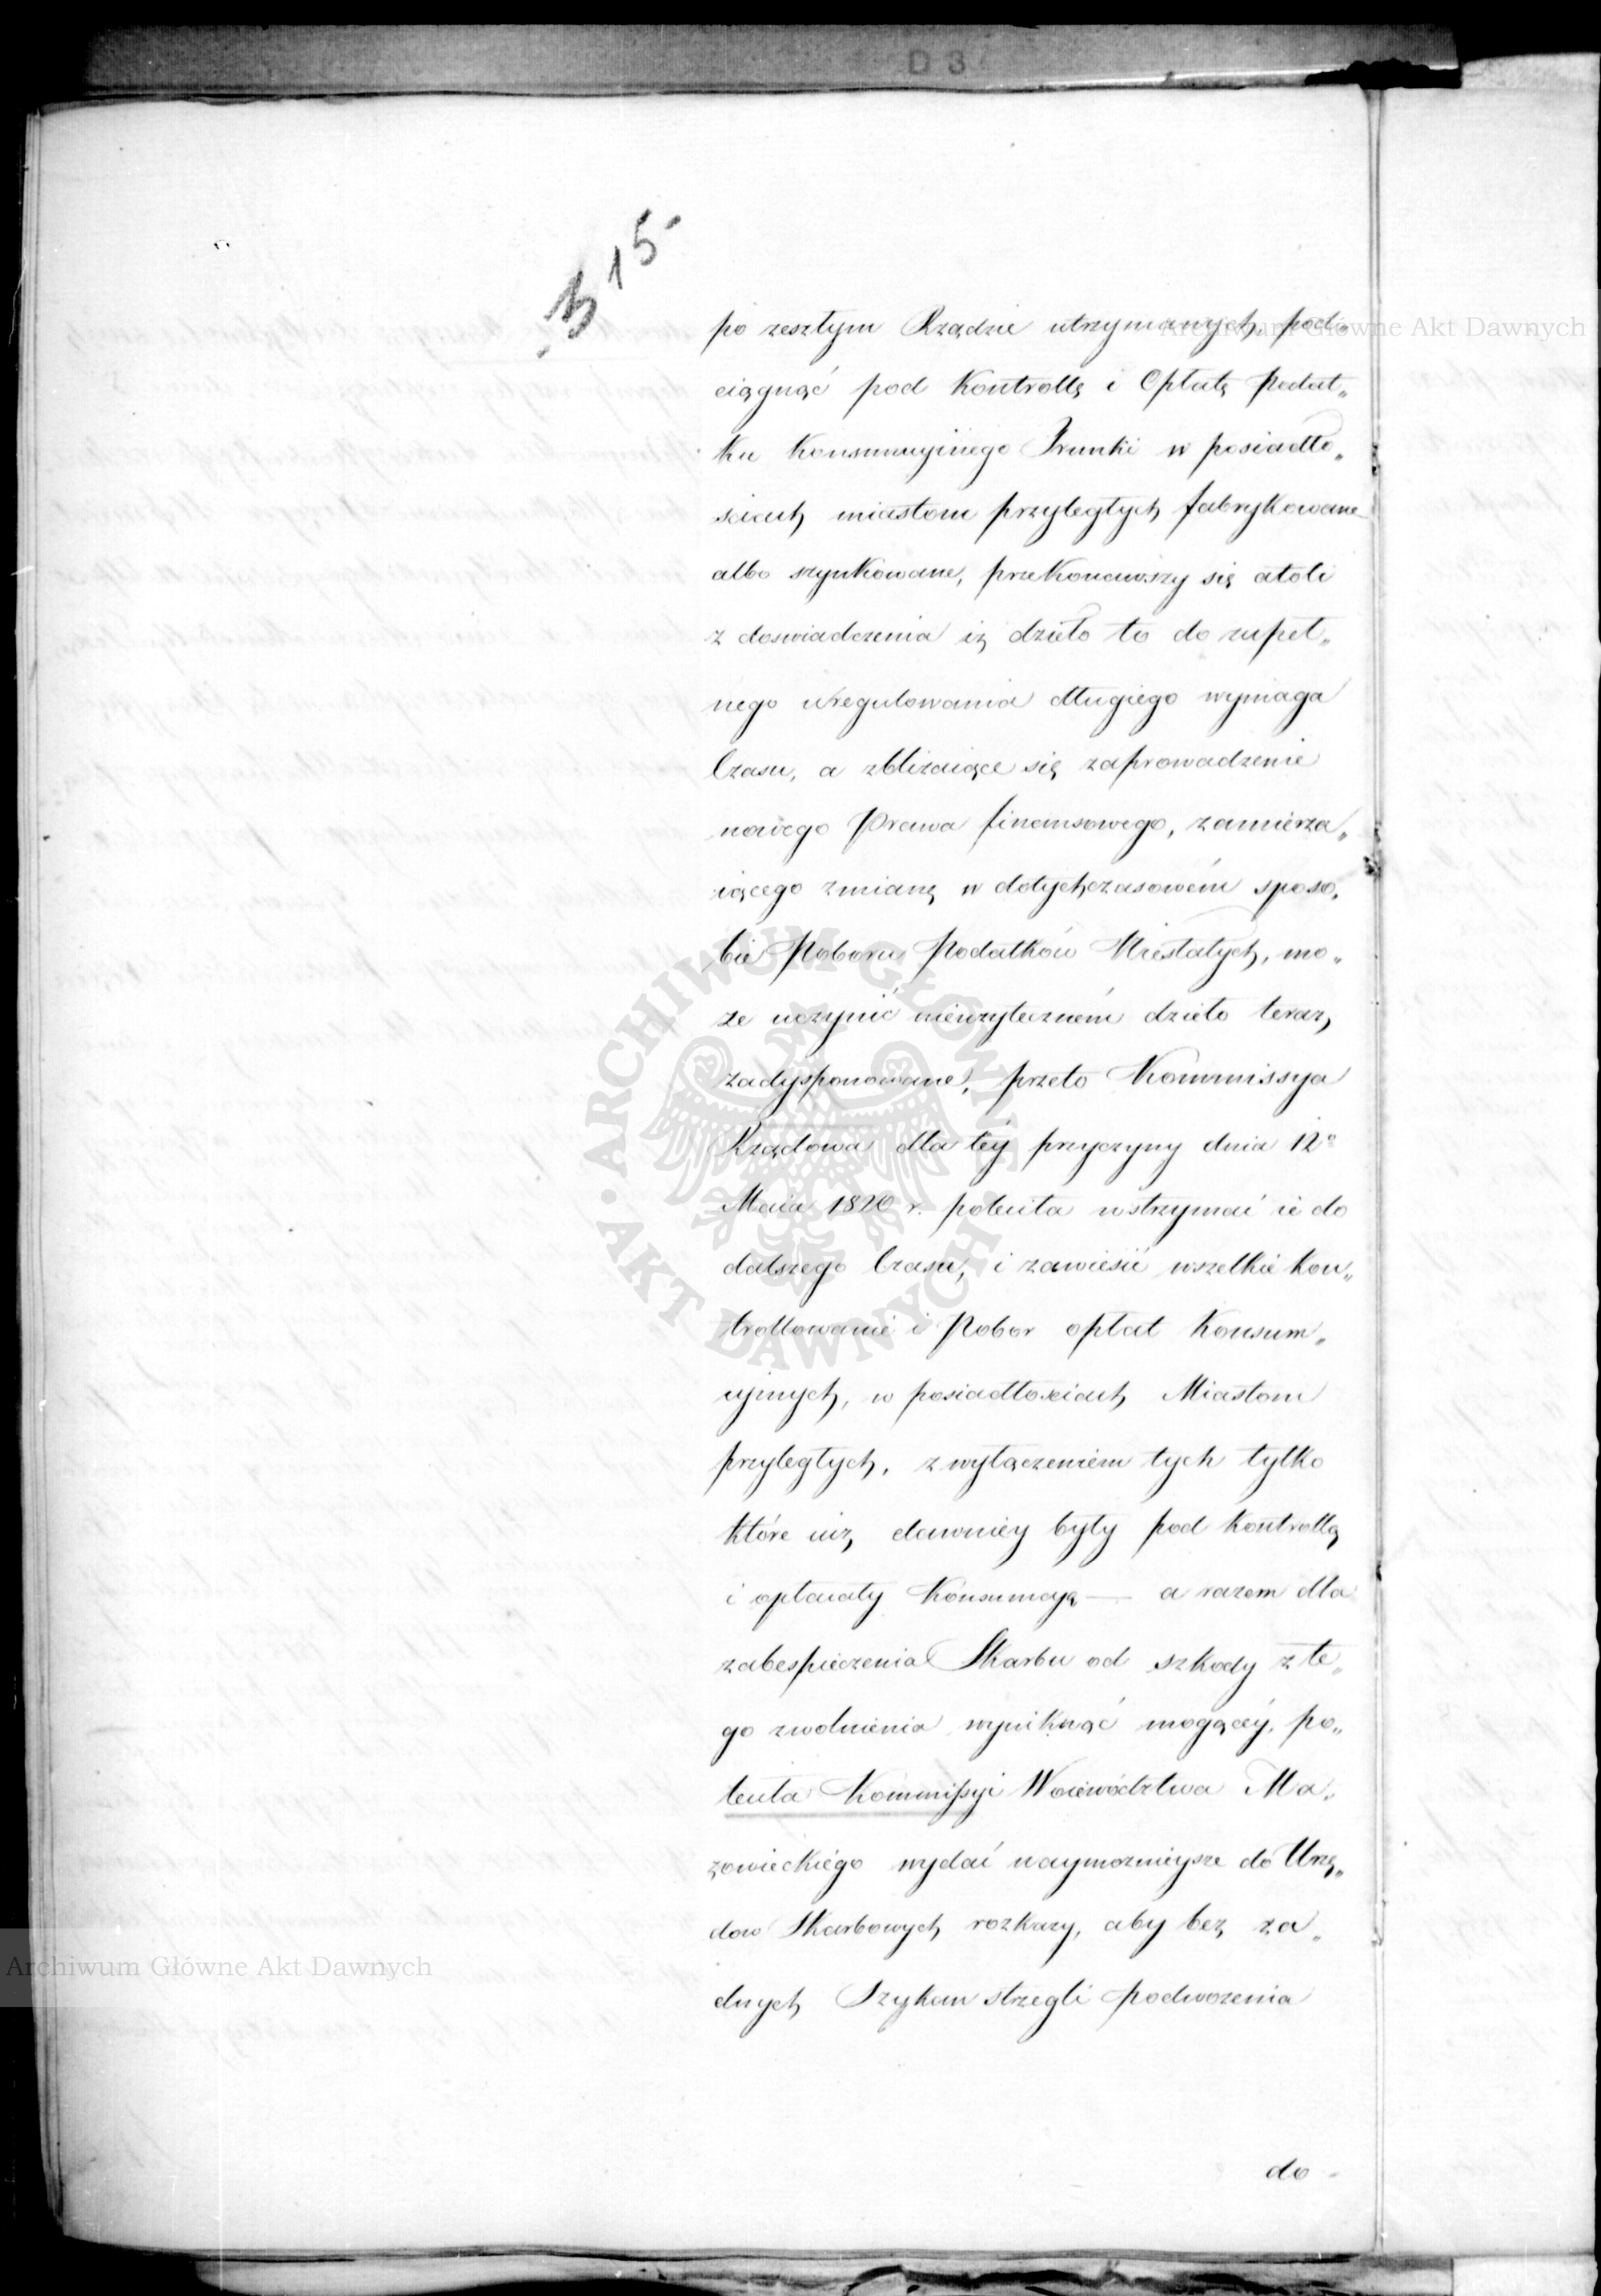 D 3
315
po zeszłym Rządzie utrzymanych, pod„
ciągnąć pod Kontrollę i Opłatę Podat„
ku Konsumcyinego Trunki w posiadło„
sciach miastom przyległych fabrykowane
albo szynkowane, przekonawszy się atoli
z doswiadczenia iż dzieło to do zupeł„
nego uregulowania długiego wymaga
Czasu, a zbliżaiące się zaprowadzenie
nowego Prawa finansowego, zamierza„
iącego zmianę w dotychczasowém sposo„
bie Poboru Podatków Niestałych, mo„
że uczynić nieużyteczném dzieło teraz
zadysponowane, przeto Kommissya
Rządowa dla téy przyczyny dnia 12º
Maia 1820 r. poleciła wstrzymać ie do
dalszego Czasu, i zawiesić wszelkie kon„
trollowanie i Pobor opłat Konsum„
cyinych, w posiadłościach Miastom
przyległych, z wyłączeniem tych tylko
które iuż dawniey były pod kontrollą
i opłacały Konsumcyą — a razem dla
zabespieczenia Skarbu od szkody z te„
go zwolnienia wyniknąć mogącéy, po„
leciła Kommissyi Woiewództwa Ma„
zowieckiégo wydać naymocnieysze do Urzę„
dow Skarbowych rozkazy, aby bez ża„
dnych Szykan strzegli podwożenia
do
Archiwum Główne Akt Dawnych
Archiwum Główne Akt Dawnych
ARCHIWUM GŁÓWNE · AKT DAWNYCH ·